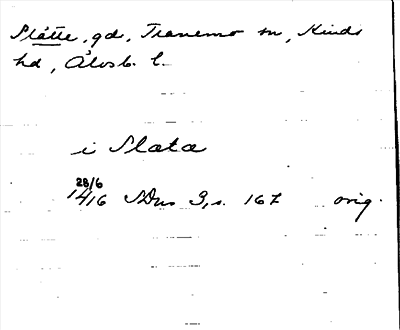 Slätte, gd, Tranemo sn, Kinds
hd, Älvsb. l.
i Slata
28/6
1416 SDns 3, s. 167 orig.